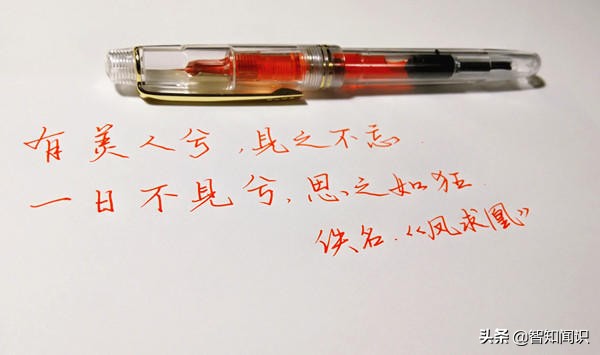 有美人兮,见之不忘
一日不见兮,思之如狂
佚名.《凤求凰》
头条 @智知闻识